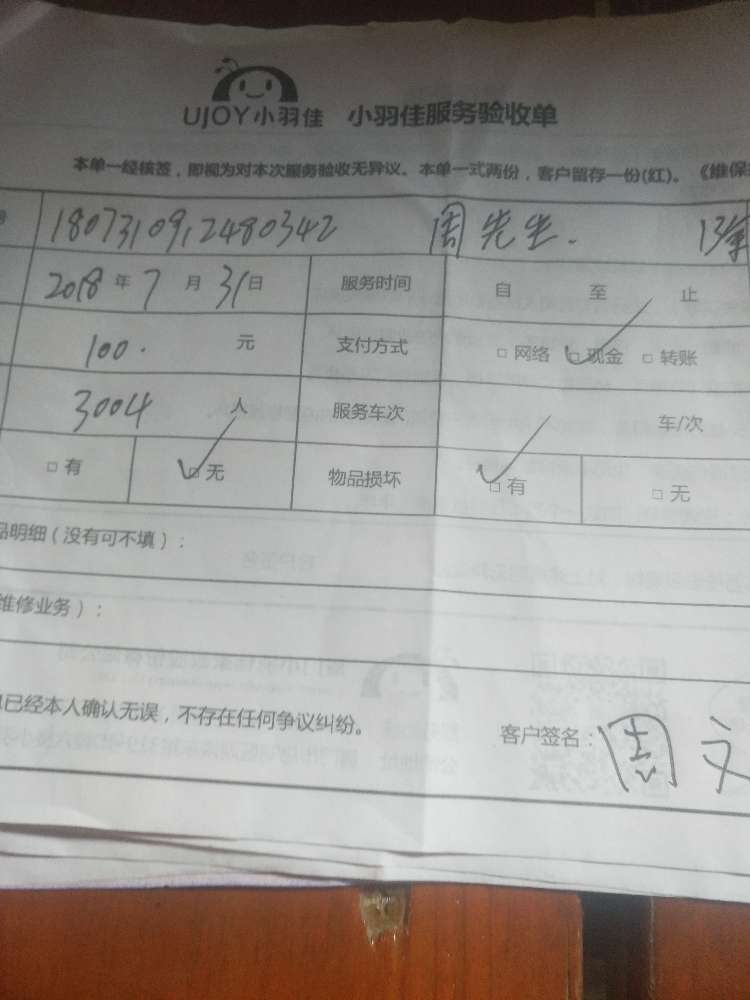 UJOY小羽佳 小羽佳服务验收单
本单一经核签，即视为对本次服务验收无异议。本单一式两份，客户留存一份(红)。《维保
1807310912480342 周先生.
2018年7月31日 服务时间 自 至 止
100. 元 支付方式 □网络 □现金 □转账
3004 人 服务车次 车/次
□有 □无 物品损坏 □有 □无
品明细（没有可不填）：
维修业务）：
已经本人确认无误，不存在任何争议纠纷。 客户签名：周文